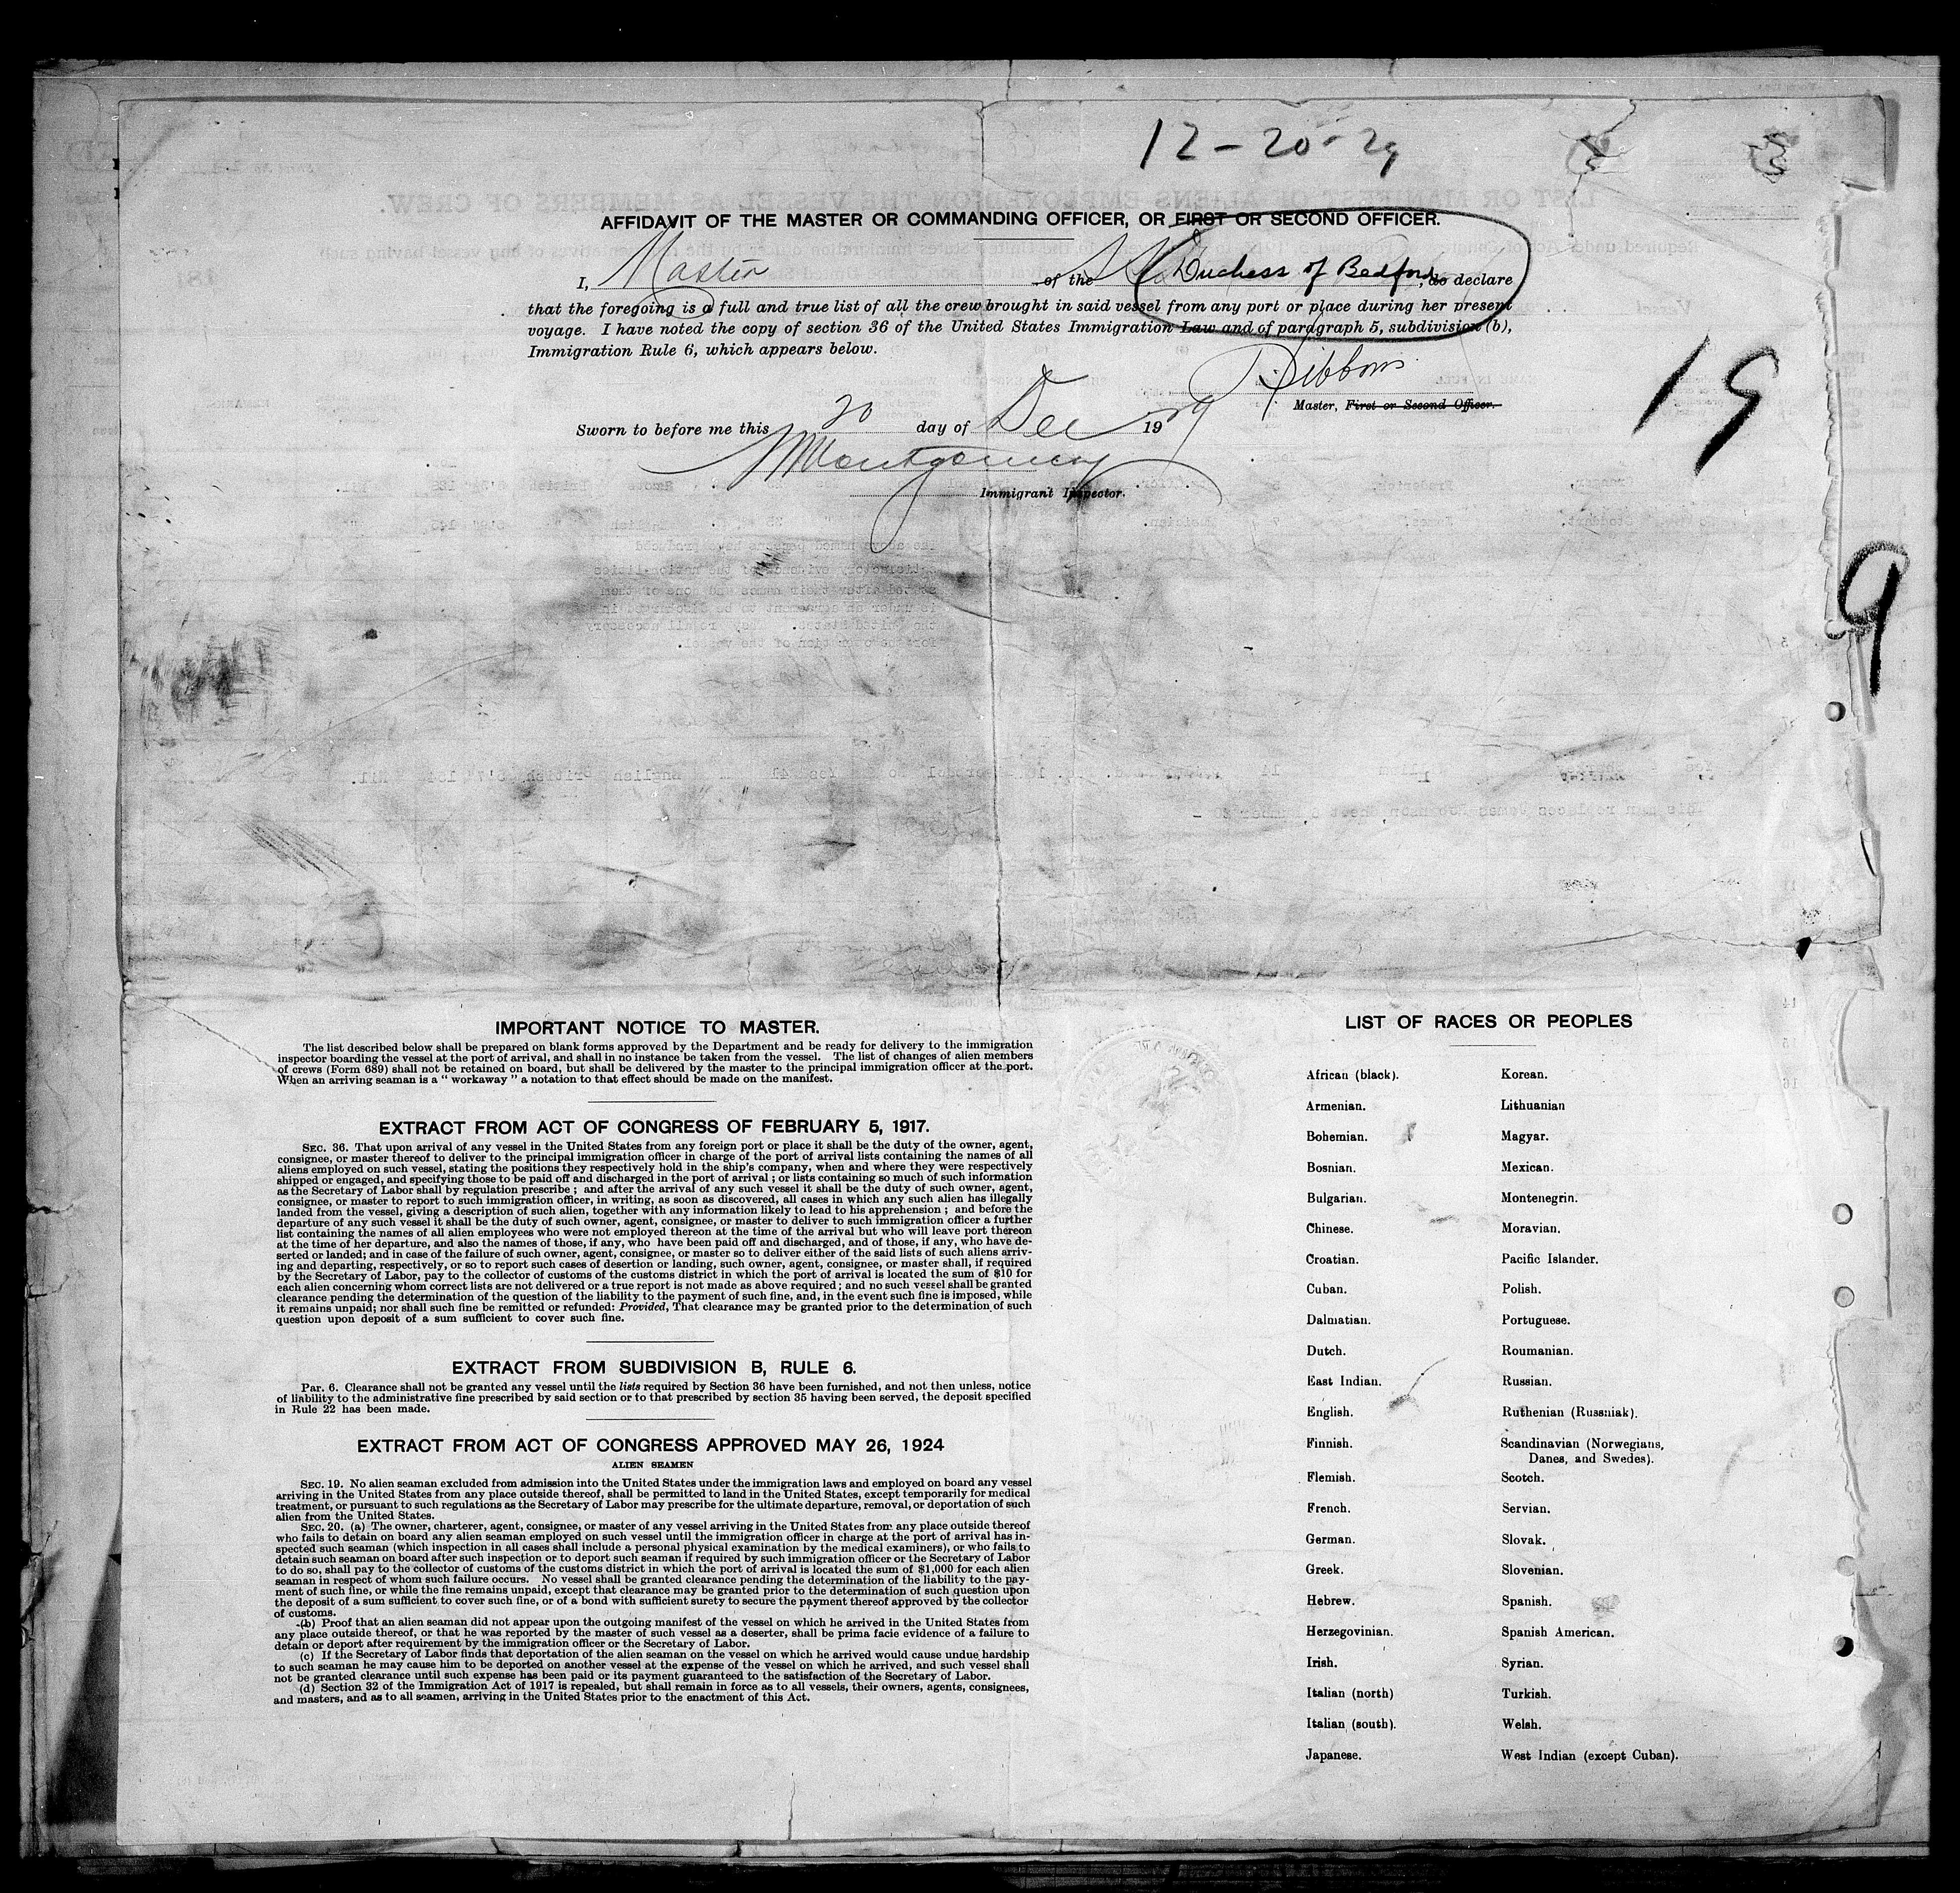 12-20-29
AFFIDAVIT OF THE MASTER OR COMMANDING OFFICER, OR FIRST OR SECOND OFFICER.
I, Master of the SS Duchess of Bedford, do declare
that the foregoing is a full and true list of all the crew brought in said vessel from any port or place during her present
voyage. I have noted the copy of section 36 of the United States Immigration Law and of paragraph 5, subdivision (b),
Immigration Rule 6, which appears below.
19
Gibbons
Master, First or Second Officer.
Sworn to before me this 20 day of Dec 1929
Montgomery
Immigrant Inspector.
9
IMPORTANT NOTICE TO MASTER.
The list described below shall be prepared on blank forms approved by the Department and be ready for delivery to the immigration
inspector boarding the vessel at the port of arrival, and shall in no instance be taken from the vessel. The list of changes of alien members
of crews (Form 689) shall not be retained on board, but shall be delivered by the master to the principal immigration officer at the port.
When an arriving seaman is a " workaway " a notation to that effect should be made on the manifest.
EXTRACT FROM ACT OF CONGRESS OF FEBRUARY 5, 1917.
SEC. 36. That upon arrival of any vessel in the United States from any foreign port or place it shall be the duty of the owner, agent,
consignee, or master thereof to deliver to the principal immigration officer in charge of the port of arrival lists containing the names of all
aliens employed on such vessel, stating the positions they respectively hold in the ship's company, when and where they were respectively
shipped or engaged, and specifying those to be paid off and discharged in the port of arrival ; or lists containing so much of such information
as the Secretary of Labor shall by regulation prescribe ; and after the arrival of any such vessel it shall be the duty of such owner, agent,
consignee, or master to report to such immigration officer, in writing, as soon as discovered, all cases in which any such alien has illegally
landed from the vessel, giving a description of such alien, together with any information likely to lead to his apprehension ; and before the
departure of any such vessel it shall be the duty of such owner, agent, consignee, or master to deliver to such immigration officer a further
list containing the names of all alien employees who were not employed thereon at the time of the arrival but who will leave port thereon
at the time of her departure, and also the names of those, if any, who have been paid off and discharged, and of those, if any, who have de-
serted or landed; and in case of the failure of such owner, agent, consignee, or master so to deliver either of the said lists of such aliens arriv-
ing and departing, respectively, or so to report such cases of desertion or landing, such owner, agent, consignee, or master shall, if required
by the Secretary of Labor, pay to the collector of customs of the customs district in which the port of arrival is located the sum of $10 for
each alien concerning whom correct lists are not delivered or a true report is not made as above required ; and no such vessel shall be granted
clearance pending the determination of the question of the liability to the payment of such fine, and, in the event such fine is imposed, while
it remains unpaid; nor shall such fine be remitted or refunded: Provided, That clearance may be granted prior to the determination of such
question upon deposit of a sum sufficient to cover such fine.
EXTRACT FROM SUBDIVISION B, RULE 6.
Par. 6. Clearance shall not be granted any vessel until the lists required by Section 36 have been furnished, and not then unless, notice
of liability to the administrative fine prescribed by said section or to that prescribed by section 35 having been served, the deposit specified
in Rule 22 has been made.
EXTRACT FROM ACT OF CONGRESS APPROVED MAY 26, 1924
ALIEN SEAMEN
SEC. 19. No alien seaman excluded from admission into the United States under the immigration laws and employed on board any vessel
arriving in the United States from any place outside thereof, shall be permitted to land in the United States, except temporarily for medical
treatment, or pursuant to such regulations as the Secretary of Labor may prescribe for the ultimate departure, removal, or deportation of such
alien from the United States.
SEC. 20. (a) The owner, charterer, agent, consignee, or master of any vessel arriving in the United States from any place outside thereof
who fails to detain on board any alien seaman employed on such vessel until the immigration officer in charge at the port of arrival has in-
spected such seaman (which inspection in all cases shall include a personal physical examination by the medical examiners), or who fails to
detain such seaman on board after such inspection or to deport such seaman if required by such immigration officer or the Secretary of Labor
to do so, shall pay to the collector of customs of the customs district in which the port of arrival is located the sum of $1,000 for each alien
seaman in respect of whom such failure occurs. No vessel shall be granted clearance pending the determination of the liability to the pay-
ment of such fine, or while the fine remains unpaid, except that clearance may be granted prior to the determination of such question upon
the deposit of a sum sufficient to cover such fine, or of a bond with sufficient surety to secure the payment thereof approved by the collector
of customs.
(b) Proof that an alien seaman did not appear upon the outgoing manifest of the vessel on which he arrived in the United States from
any place outside thereof, or that he was reported by the master of such vessel as a deserter, shall be prima facie evidence of a failure to
detain or deport after requirement by the immigration officer or the Secretary of Labor.
(c) If the Secretary of Labor finds that deportation of the alien seaman on the vessel on which he arrived would cause undue hardship
to such seaman he may cause him to be deported on another vessel at the expense of the vessel on which he arrived, and such vessel shall
not be granted clearance until such expense has been paid or its payment guaranteed to the satisfaction of the Secretary of Labor.
(d) Section 32 of the Immigration Act of 1917 is repealed, but shall remain in force as to all vessels, their owners, agents, consignees,
and masters, and as to all seamen, arriving in the United States prior to the enactment of this Act.
LIST OF RACES OR PEOPLES
African (black). Korean.
Armenian. Lithuanian
Bohemian. Magyar.
Bosnian. Mexican.
Bulgarian. Montenegrin.
Chinese. Moravian.
Croatian. Pacific Islander.
Cuban. Polish.
Dalmatian. Portuguese.
Dutch. Roumanian.
East Indian. Russian.
English. Ruthenian (Russniak).
Finnish. Scandinavian (Norwegians,
Danes, and Swedes).
Flemish. Scotch.
French. Servian.
German. Slovak.
Greek. Slovenian.
Hebrew. Spanish.
Herzegovinian. Spanish American.
Irish. Syrian.
Italian (north) Turkish.
Italian (south). Welsh.
Japanese. West Indian (except Cuban).